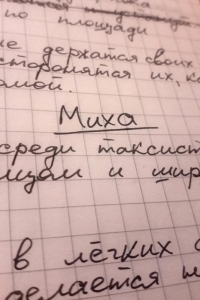 по площади
держатся своих
сторонятся их, ка
Миха
среди таксист
и шир
в лёгких
делается